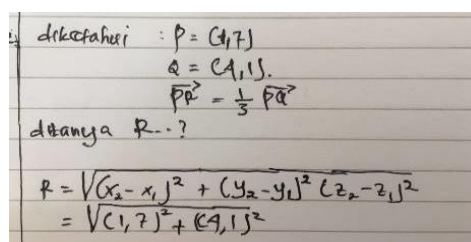 diketahui : P = (1,7)
Q = (4,1).
PR→ = 1/3 PQ→
ditanya R...?
R = √(x₂ - x₁)² + (y₂ - y₁)² (z₂ - z₁)²
= √(1,7)² + (4,1)²